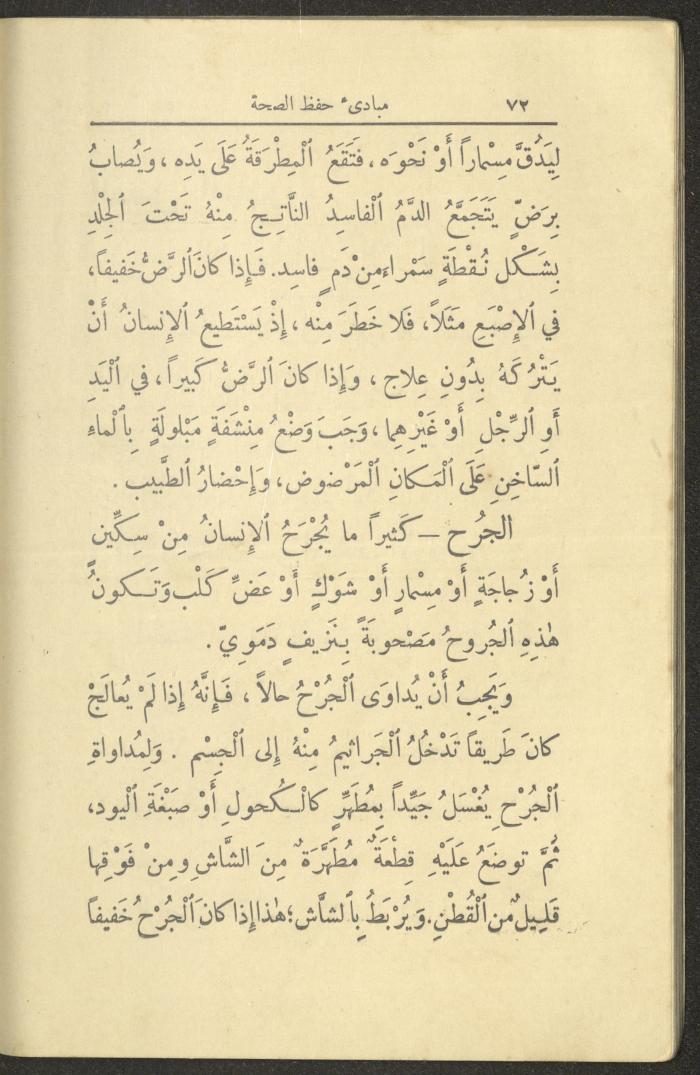 ٧٢
مبادىء حفظ الصحة
لِيَدُقَّ مِسْماراً أَوْ نَحْوَه ، فَتَقَعُ ٱلْمِطْرَقَةُ عَلَى يَدِه ، وَيُصابُ
بِرَضّ يَتَجَمَّعُ الدَّمُ ٱلْفاسِدُ النَّاتِجُ مِنْهُ تَحْتَ ٱلْجِلْدِ
بِشَكْل نُقْطَةٍ سَمْراءَ مِنْ دَمٍ فاسِد . فَإِذا كانَ ٱلرَّضُّ خَفيفاً ،
في ٱلإِصْبَعِ مَثَلاً ، فَلا خَطَرَ مِنْه ، إِذْ يَسْتَطيعُ ٱلإِنْسانُ أَنْ
يَتْرُكَهُ بِدُونِ عِلاج ، وَإِذا كانَ ٱلرَّضُّ كَبيراً ، في ٱلْيَدِ
أَوِ ٱلرِّجْلِ أَوْ غَيْرِهِما ، وَجَبَ وَضْعُ مِنْشَفَةٍ مَبْلولَةٍ بِٱلْماءِ
ٱلسّاخِنِ عَلَى ٱلْمَكانِ ٱلْمَرْضوض ، وَإِحْضارُ ٱلطَّبيب .
الجُرح – كَثيراً ما يُجْرَحُ ٱلإِنْسانُ مِنْ سِكِّينٍ
أَوْ زُجاجَةٍ أَوْ مِسْمارٍ أَوْ شَوْكٍ أَوْ عَضِّ كَلْب وَتَكونُ
هٰذِهِ ٱلْجُروحُ مَصْحوبَةً بِنَزيفٍ دَمَوِيّ .
وَيَجِبُ أَنْ يُداوَى ٱلْجُرْحُ حالاً ، فَإِنَّهُ إِذا لَمْ يُعالَجْ
كانَ طَريقاً تَدْخُلُ ٱلْجَراثيمُ مِنْهُ إِلى ٱلْجِسْم . وَلِمُداواةِ
ٱلْجُرْحِ يُغْسَلُ جَيِّداً بِمُطَهِّرٍ كالْكُحولِ أَوْ صَبْغَةِ ٱلْيود ،
ثُمَّ توضَعُ عَلَيْهِ قِطْعَةٌ مُطَهَّرَةٌ مِنَ الشَّاشِ ومِنْ فَوْقِها
قَليلٌ من ٱلْقُطْنِ . وَيُرْبَطُ بِٱلشاش ؛ هٰذا إِذا كانَ ٱلْجُرْحُ خَفيفاً